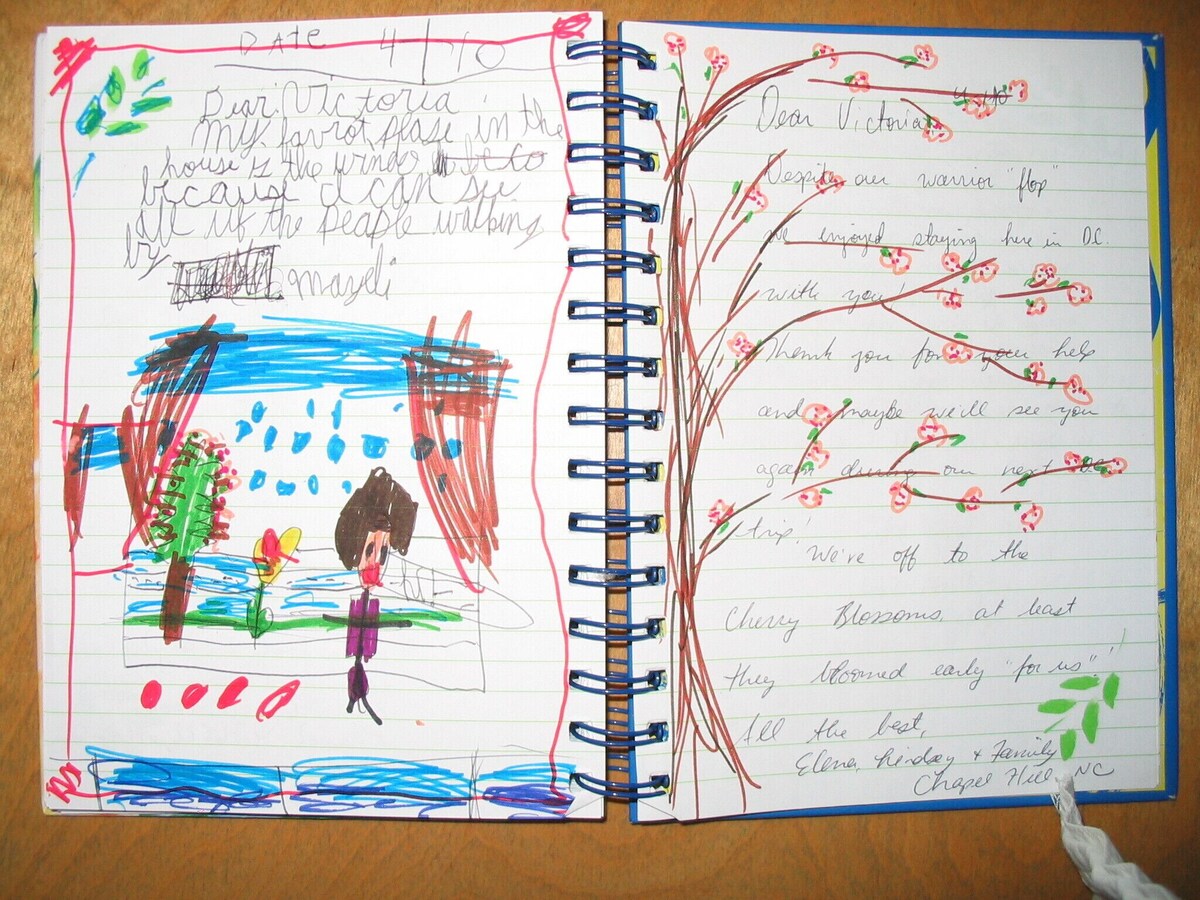 DATE 4/10
Dear Victoria
My favrot plase in the
house is the window
because I can see
all uf the people walking
by
mazeli
4-10
Dear Victoria,
Despite our warrior "flop"
we enjoyed staying here in D.C.
with you!
Thank you for your help
and maybe we'll see you
again during our next DC
trip!
We're off to the
Cherry Blossoms, at least
they bloomed early "for us"!
All the best,
Elena, Lindsay + Family
Chapel Hill, NC